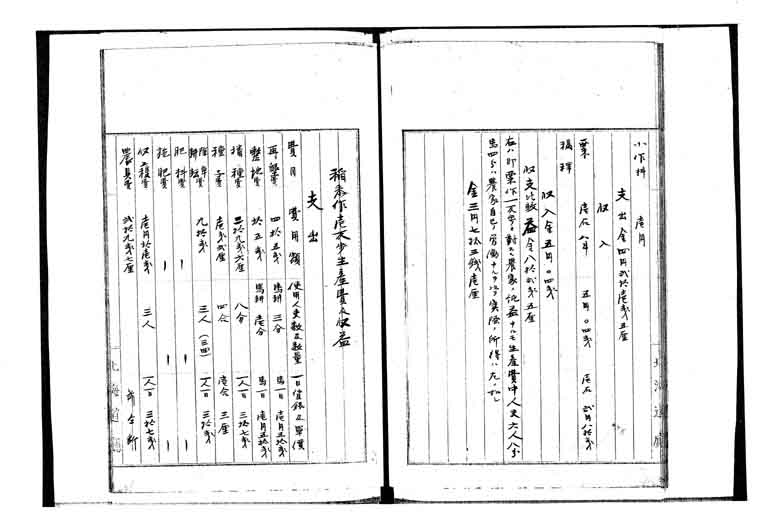 小作料　壱円
支出金四円弐拾壱銭五厘
収入
粟　壱石八斗　五円〇四銭　壱石　弐円八拾銭
稿稈
収入金五円〇四銭
収支比較益金八拾弐銭五厘
右ハ即粟作一反歩ニ対スル農家ノ純益ナルモ生産費中人夫六人八分
馬四分ハ農家自己ノ労働ナルヲ以テ実際ノ所得ハ左ノ如シ
金三円七拾三銭壱厘
北海道廳
稲黍作壱反歩生産費及収益
支出
費目　費用額　使用人夫数及数量　一日賃銭及単価
再墾費　四拾五銭　馬耕　三分　馬一日　壱円五拾銭
整地費　拾五銭　馬耕　壱分　馬一日　壱円五拾銭
播種費　二拾九銭六厘　八分　一人一日　三拾七銭
種子費　壱銭弐厘　四合　壱合　三厘
除草費　耕耘費　九拾銭　三人（三回）　一人一日　三拾銭
肥料費　｜　｜　｜
施肥費　｜　｜　｜
収穫費　壱円拾壱銭　三人　一人一日　三拾七銭
農具費　弐拾九銭七厘
北海道廳